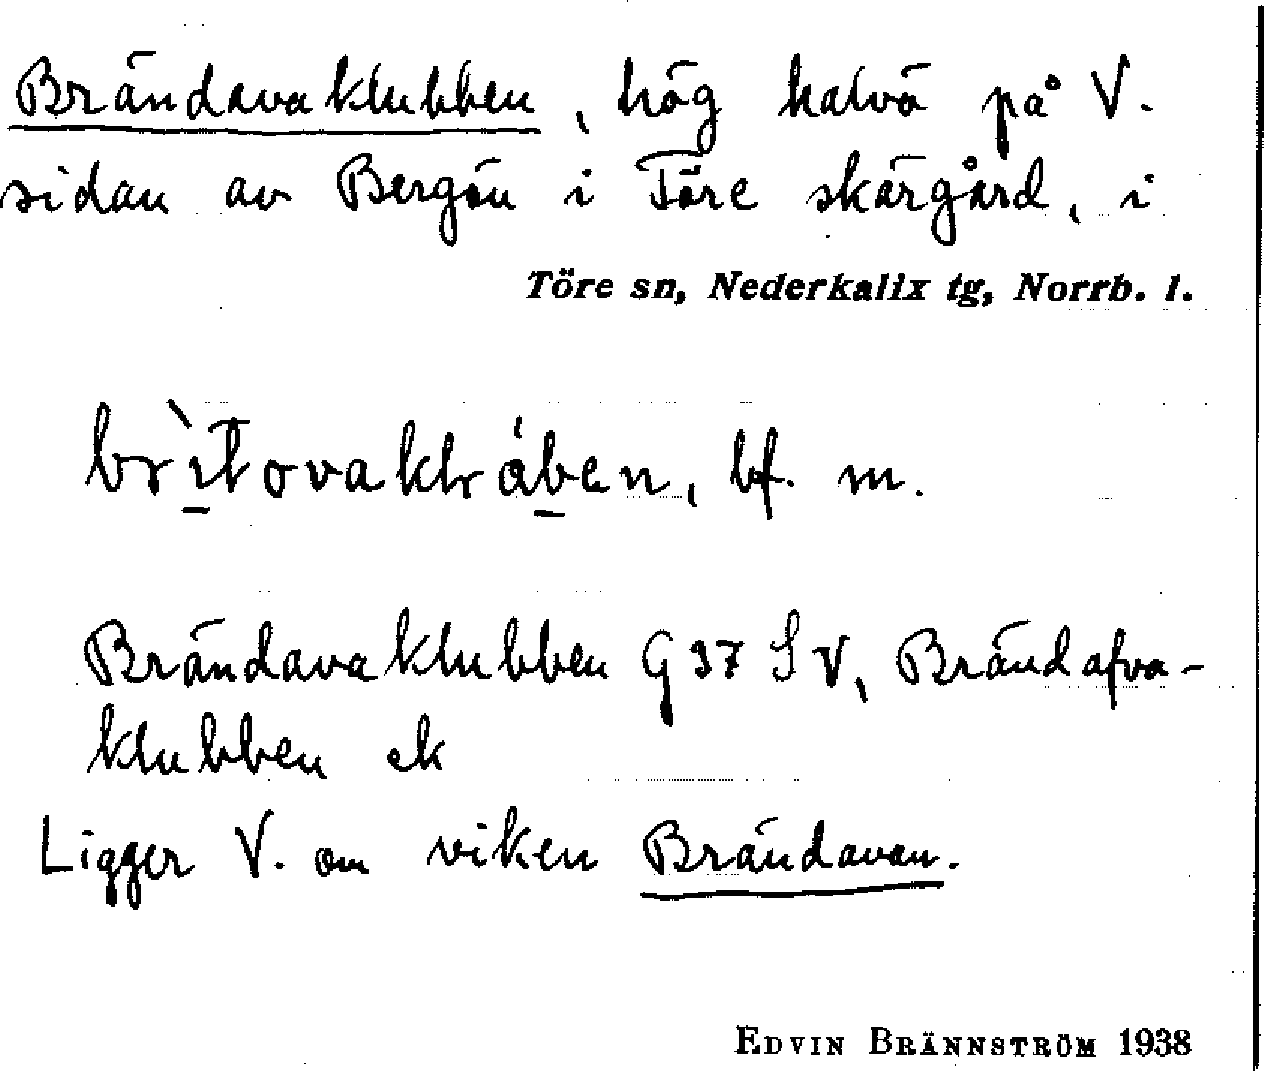 Brändavaklubben, hög halvö på V.
sidan av Bergön i Töre skärgård, i
Töre sn, Nederkalix tg, Norrb. l.
bf. m.
Brändavaklubben G 37 SV, Brändafva-
klubben ek
Ligger V. om viken Brändavan.
EDVIN BRÄNNSTRÖM 1938